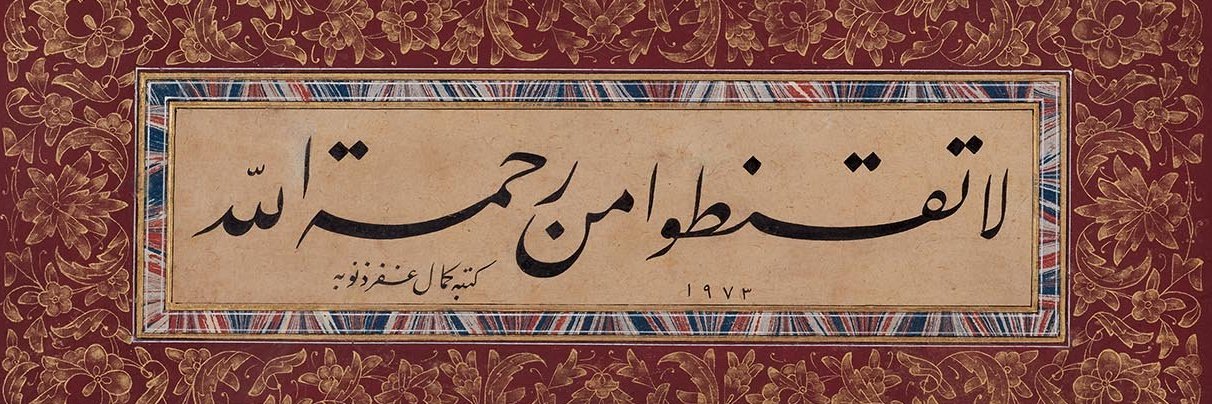 لا تقنطوا من رحمة الله
١٩٧٣
كتبه كمال غفر ذنوبه